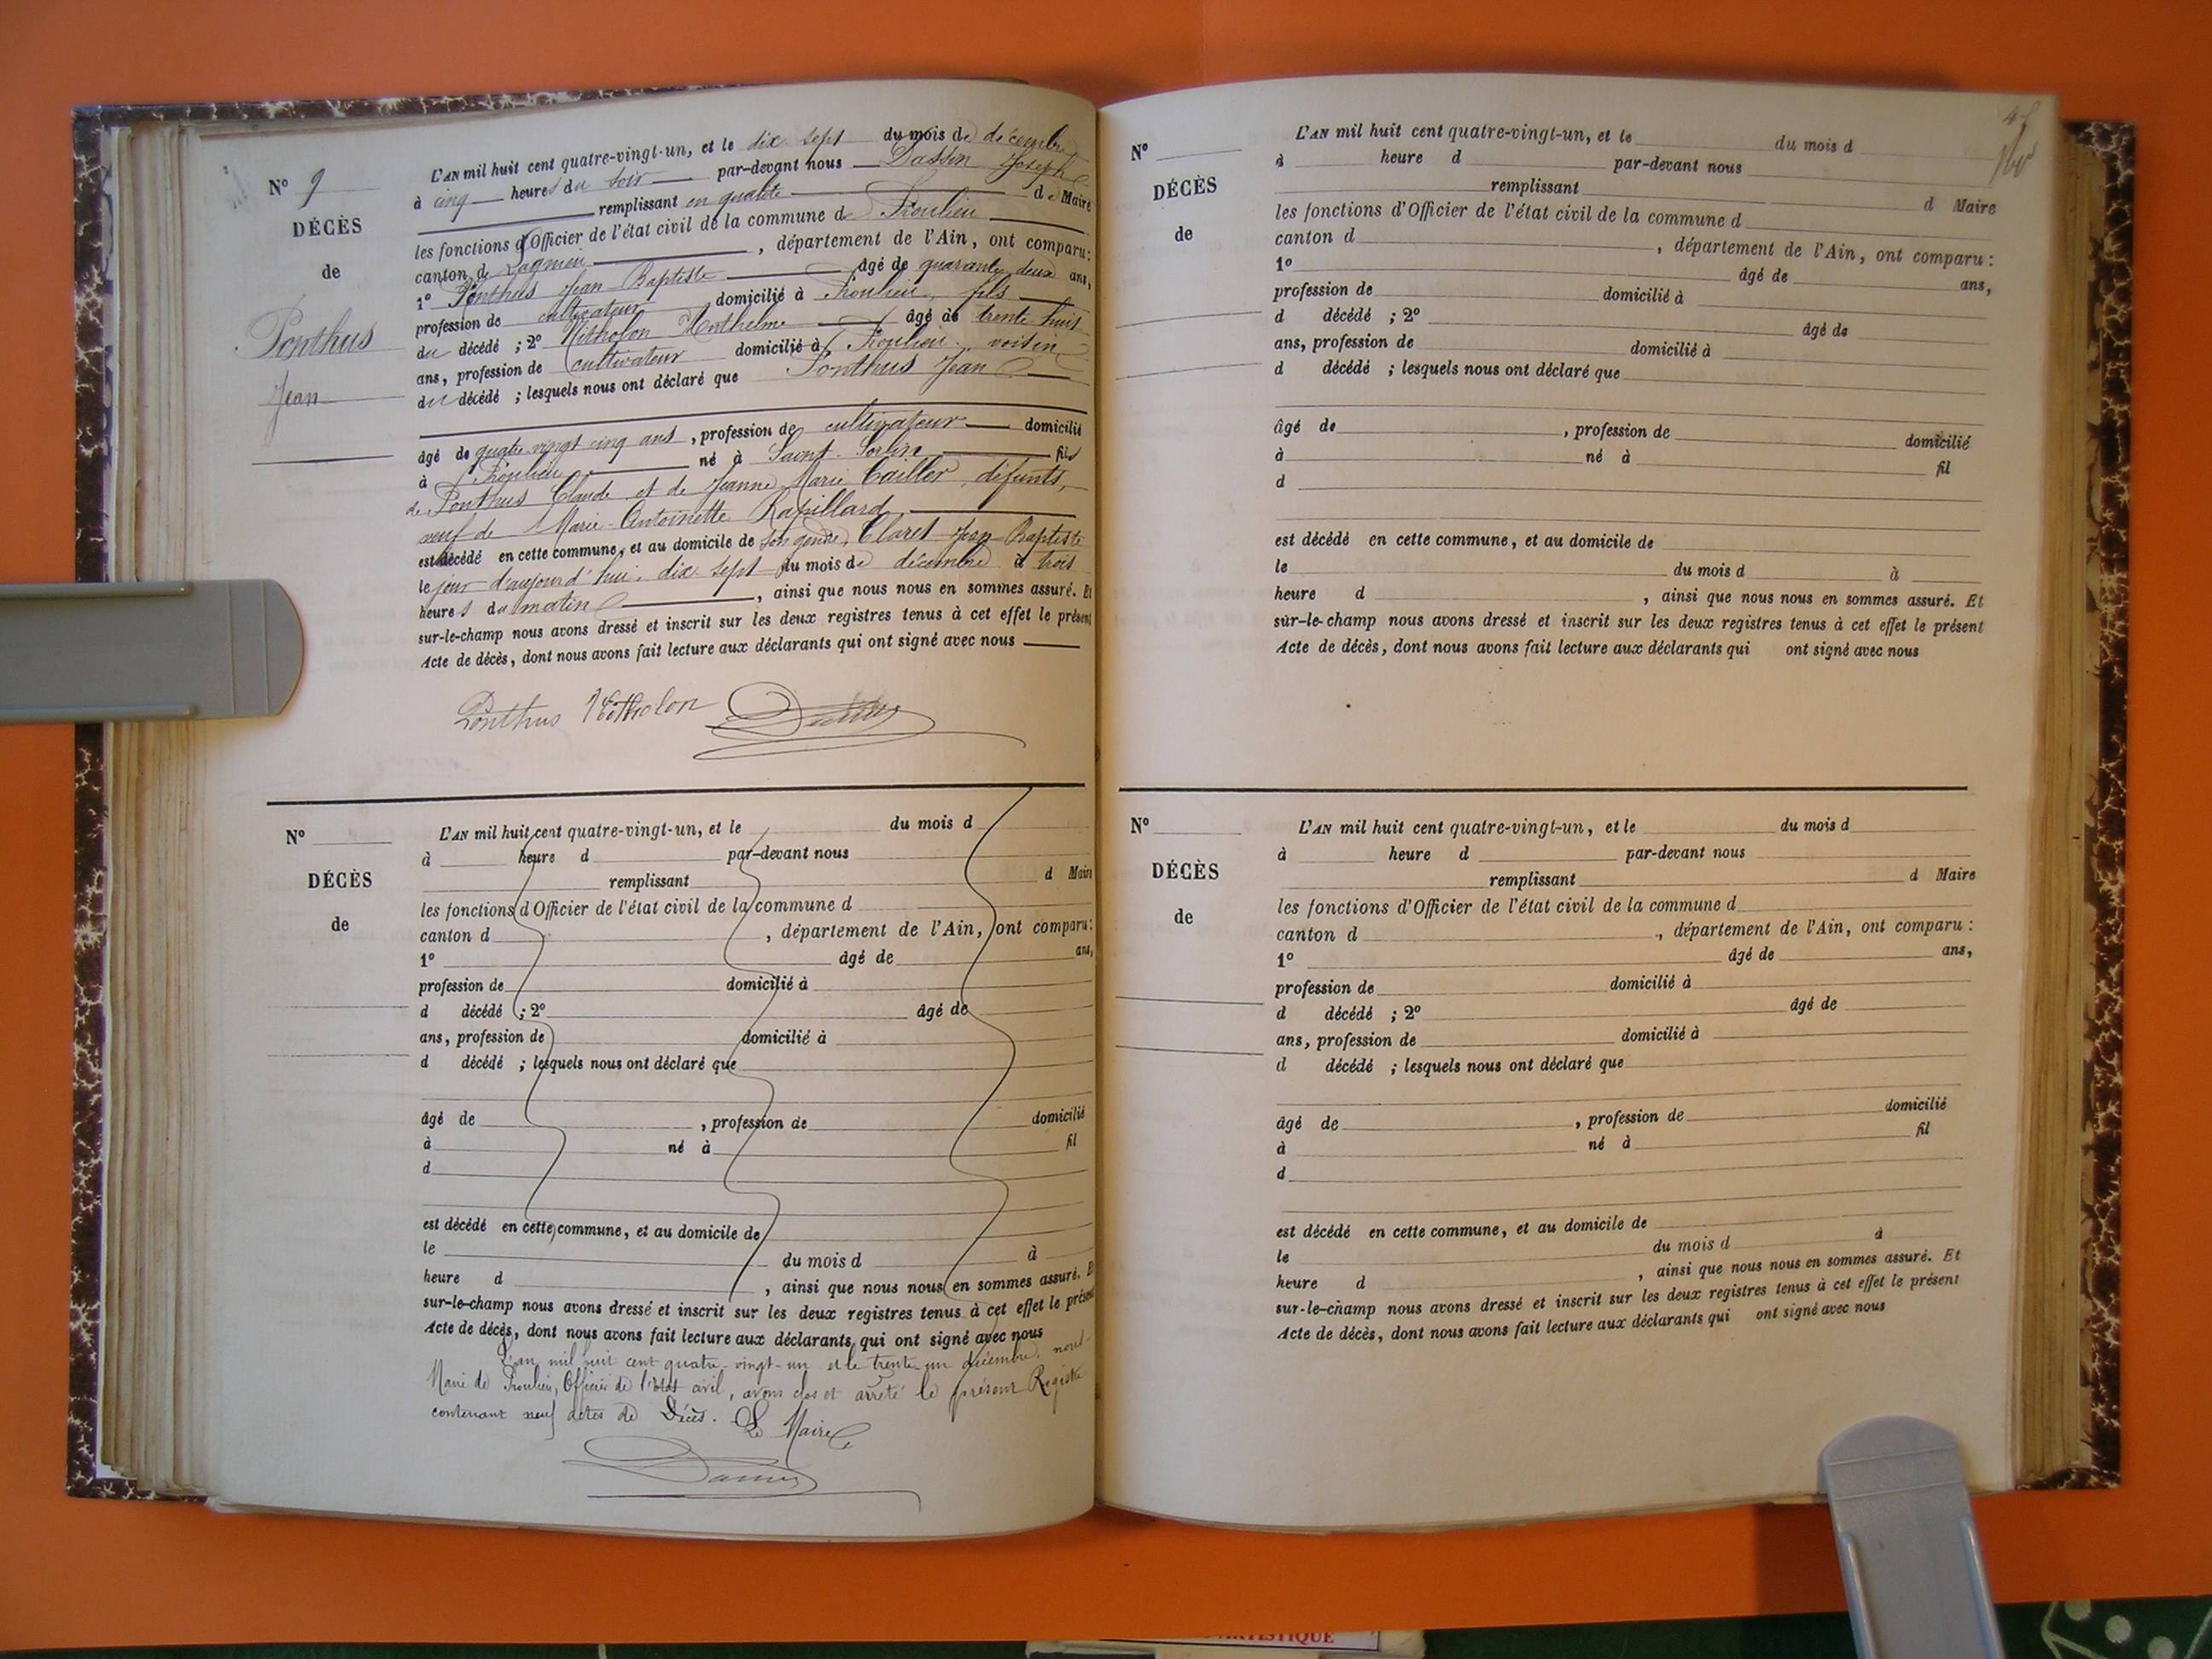 N° 9
DÉCÈS
de
Ponthus
Jean
L'AN mil huit cent quatre-vingt-un, et le dix sept du mois de décembre
à cinq heures du soir par-devant nous Dassin Joseph
remplissant en qualité de Maire
les fonctions d'Officier de l'état civil de la commune de Proulieu
canton de Lagnieu, département de l'Ain, ont comparu:
1° Ponthus Jean Baptiste âgé de quarante deux ans,
profession de cultivateur domicilié à Proulieu, fils
du décédé ; 2° Anthelme âgé de trente huit
ans, profession de cultivateur domicilié à Proulieu, voisin
du décédé ; lesquels nous ont déclaré que Ponthus Jean
âgé de quatre vingt cinq ans, profession de cultivateur domicilié
à Proulieu né à Saint Sorlin fils
de Ponthus Claude et de Jeanne Marie Caillet, défunts,
veuf de Marie Antoinette Rapillard
est décédé en cette commune, et au domicile de son gendre, Claret Jean Baptiste
le jour d'aujourd'hui, dix sept du mois de décembre à trois
heures du matin, ainsi que nous nous en sommes assuré. Et
sur-le-champ nous avons dressé et inscrit sur les deux registres tenus à cet effet le présent
Acte de décès, dont nous avons fait lecture aux déclarants qui ont signé avec nous
Ponthus
N°
DÉCÈS
de
L'AN mil huit cent quatre-vingt-un, et le du mois d
à heure d par-devant nous
remplissant d Maire
les fonctions d'Officier de l'état civil de la commune d
canton d , département de l'Ain, ont comparu:
1° âgé de ans,
profession de domicilié à
d décédé ; 2° âgé de
ans, profession de domicilié à
d décédé ; lesquels nous ont déclaré que
âgé de , profession de domicilié
à né à fil
d
est décédé en cette commune, et au domicile de
le du mois d à
heure d , ainsi que nous nous en sommes assuré. Et
sur-le-champ nous avons dressé et inscrit sur les deux registres tenus à cet effet le présent
Acte de décès, dont nous avons fait lecture aux déclarants qui ont signé avec nous
L'an mil huit cent quatre-vingt-un et le trente un décembre, nous
Maire de Proulieu, Officier de l'état civil, avons clos et arrêté le présent Registre
contenant neuf actes de Décès. Le Maire
N°
DÉCÈS
de
L'AN mil huit cent quatre-vingt-un, et le du mois d
à heure d par-devant nous
remplissant d Maire
les fonctions d'Officier de l'état civil de la commune d
canton d , département de l'Ain, ont comparu :
1° âgé de ans,
profession de domicilié à
d décédé ; 2° âgé de
ans, profession de domicilié à
d décédé ; lesquels nous ont déclaré que
âgé de , profession de domicilié
à né à fil
d
est décédé en cette commune, et au domicile de
le du mois d à
heure d , ainsi que nous nous en sommes assuré. Et
sur-le-champ nous avons dressé et inscrit sur les deux registres tenus à cet effet le présent
Acte de décès, dont nous avons fait lecture aux déclarants qui ont signé avec nous
N°
DÉCÈS
de
L'AN mil huit cent quatre-vingt-un, et le du mois d
à heure d par-devant nous
remplissant d Maire
les fonctions d'Officier de l'état civil de la commune d
canton d , département de l'Ain, ont comparu :
1° âgé de ans,
profession de domicilié à
d décédé ; 2° âgé de
ans, profession de domicilié à
d décédé ; lesquels nous ont déclaré que
âgé de , profession de domicilié
à né à fil
d
est décédé en cette commune, et au domicile de
le du mois d à
heure d , ainsi que nous nous en sommes assuré. Et
sur-le-champ nous avons dressé et inscrit sur les deux registres tenus à cet effet le présent
Acte de décès, dont nous avons fait lecture aux déclarants qui ont signé avec nous